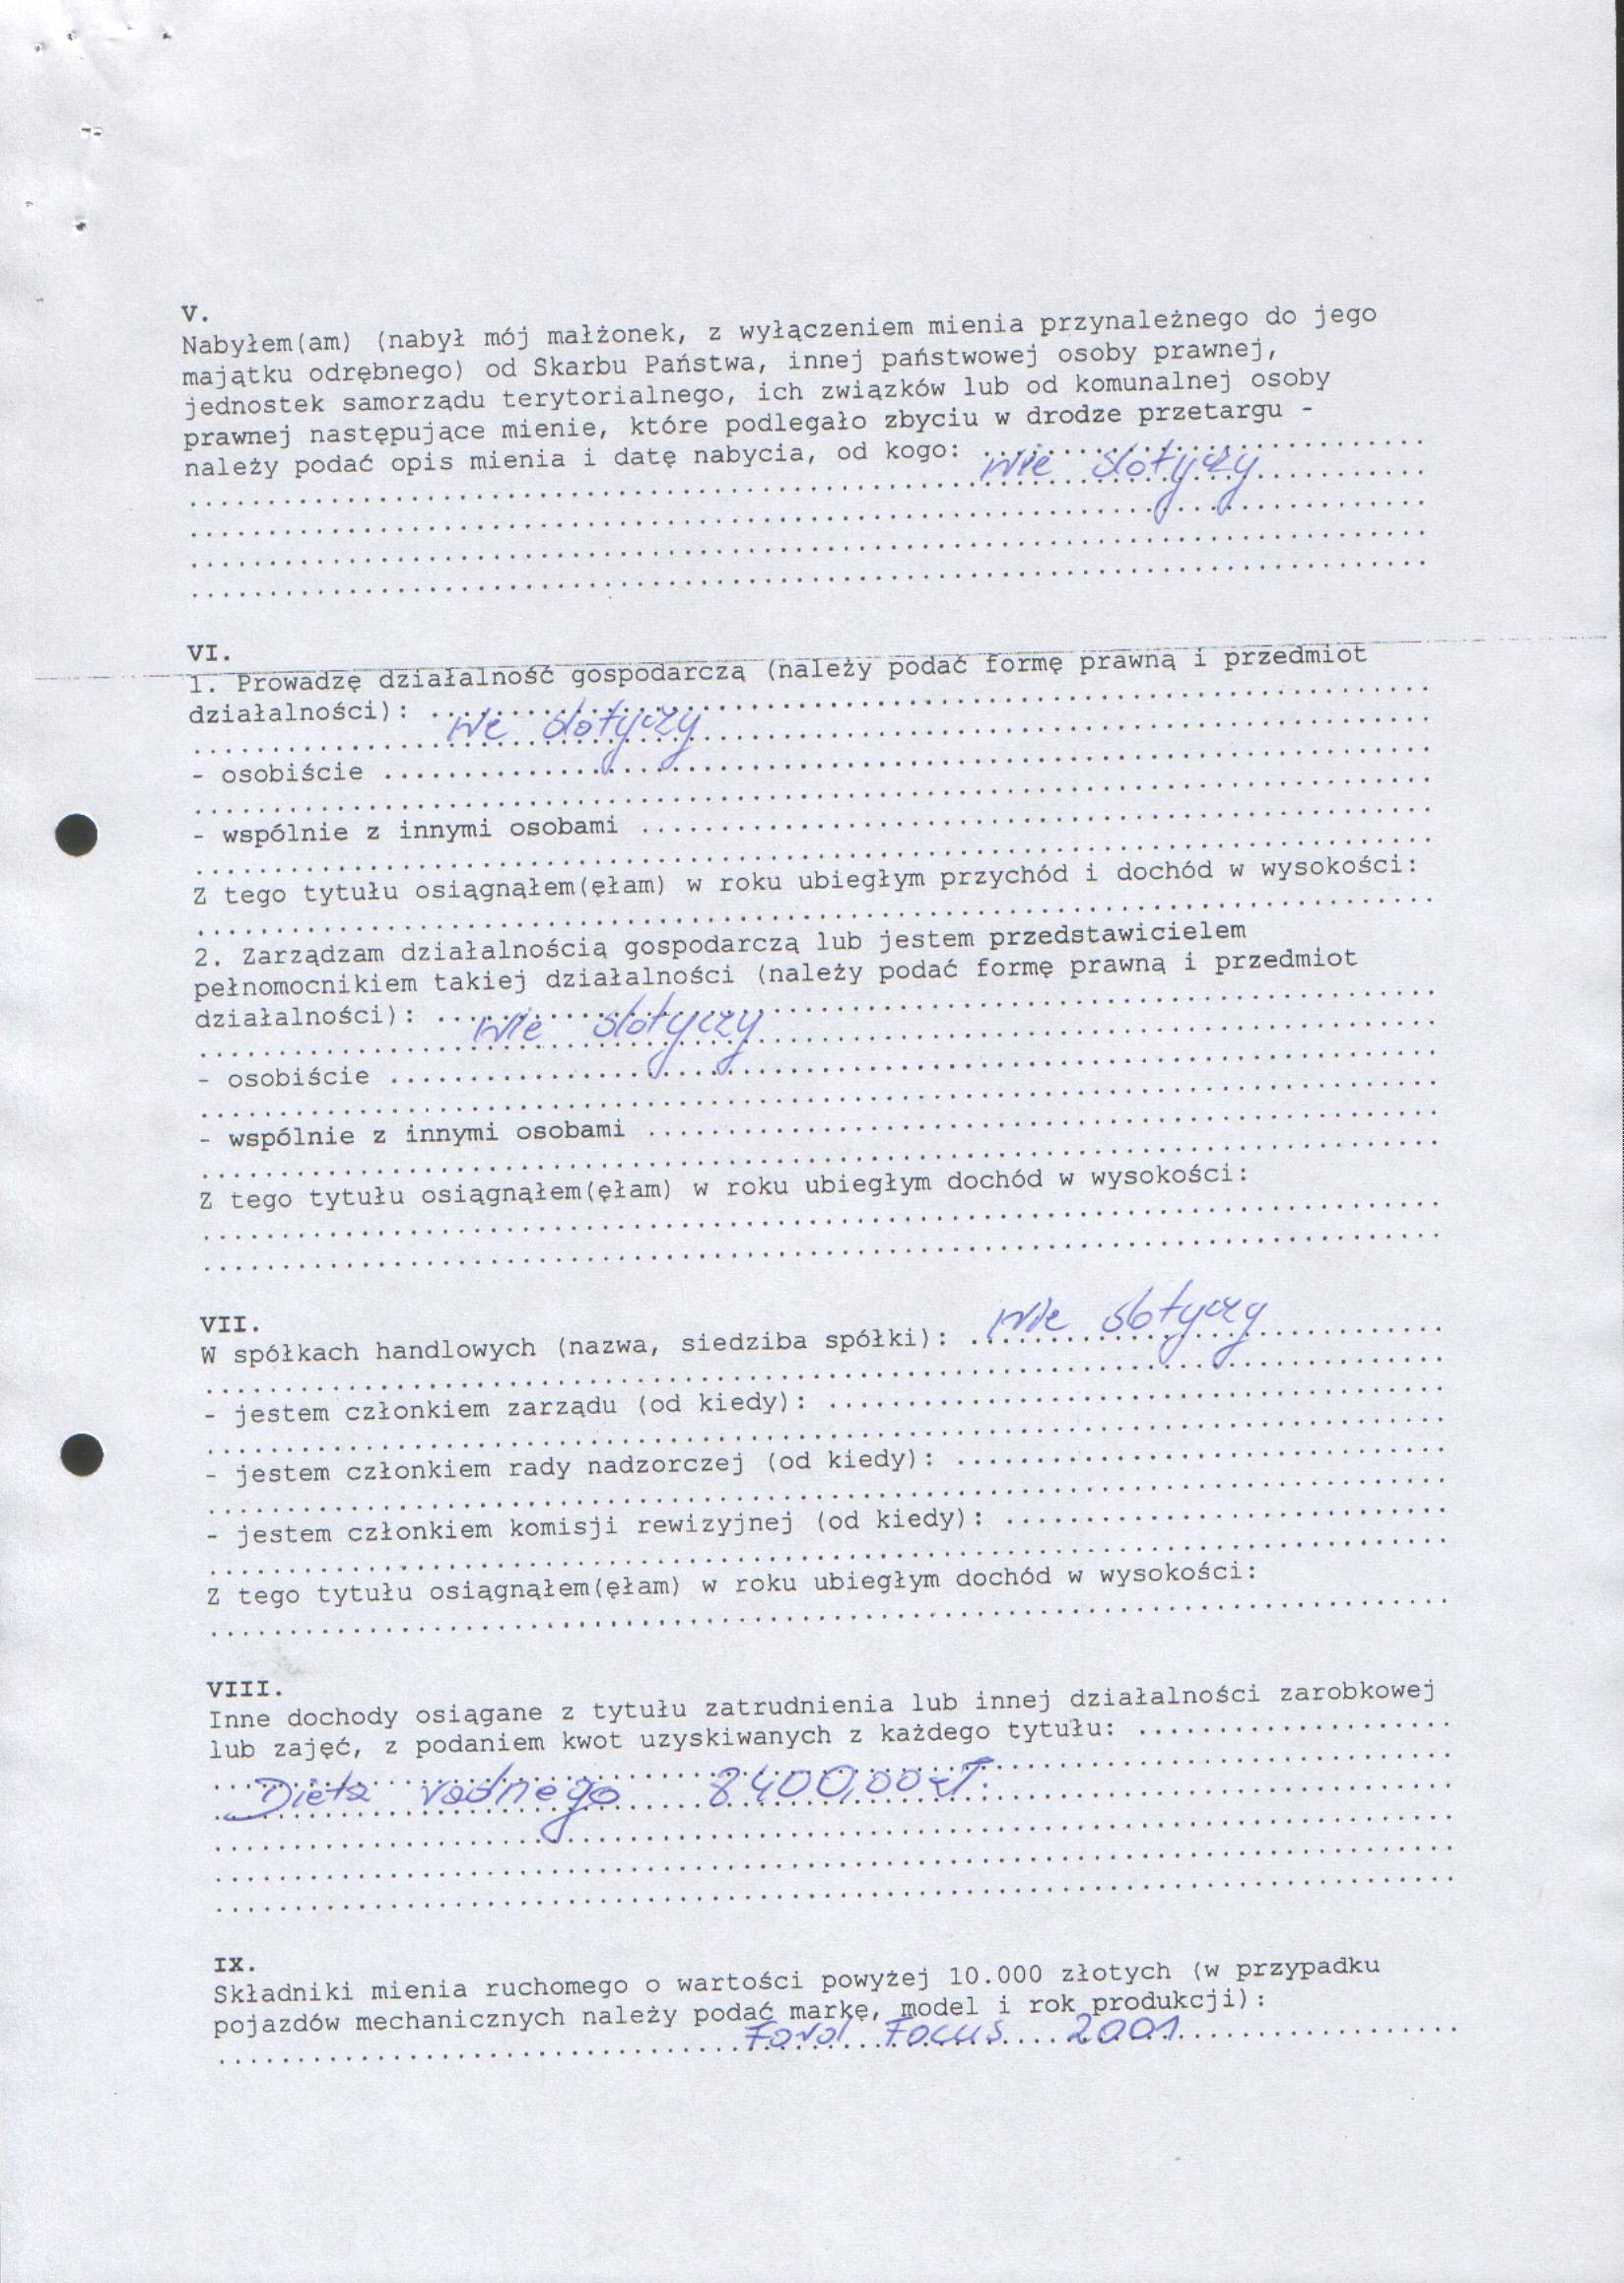 V.
Nabyłem(am) (nabył mój małżonek, z wyłączeniem mienia przynależnego do jego
majątku odrębnego) od Skarbu Państwa, innej państwowej osoby prawnej,
jednostek samorządu terytorialnego, ich związków lub od komunalnej osoby
prawnej następujące mienie, które podlegało zbyciu w drodze przetargu -
należy podać opis mienia i datę nabycia, od kogo: nie dotyczy
VI.
1. Prowadzę działalność gospodarczą (należy podać formę prawną i przedmiot
działalności): nie dotyczy
- osobiście
- wspólnie z innymi osobami
Z tego tytułu osiągnąłem(ęłam) w roku ubiegłym przychód i dochód w wysokości:
2. Zarządzam działalnością gospodarczą lub jestem przedstawicielem
pełnomocnikiem takiej działalności (należy podać formę prawną i przedmiot
działalności): nie dotyczy
- osobiście
- wspólnie z innymi osobami
Z tego tytułu osiągnąłem(ęłam) w roku ubiegłym dochód w wysokości:
VII.
W spółkach handlowych (nazwa, siedziba spółki): nie dotyczy
- jestem członkiem zarządu (od kiedy):
- jestem członkiem rady nadzorczej (od kiedy):
- jestem członkiem komisji rewizyjnej (od kiedy):
Z tego tytułu osiągnąłem(ęłam) w roku ubiegłym dochód w wysokości:
VIII.
Inne dochody osiągane z tytułu zatrudnienia lub innej działalności zarobkowej
lub zajęć, z podaniem kwot uzyskiwanych z każdego tytułu:
Dieta radnego 8400,00 zł.
IX.
Składniki mienia ruchomego o wartości powyżej 10.000 złotych (w przypadku
pojazdów mechanicznych należy podać markę, model i rok produkcji):
Ford Focus 2001